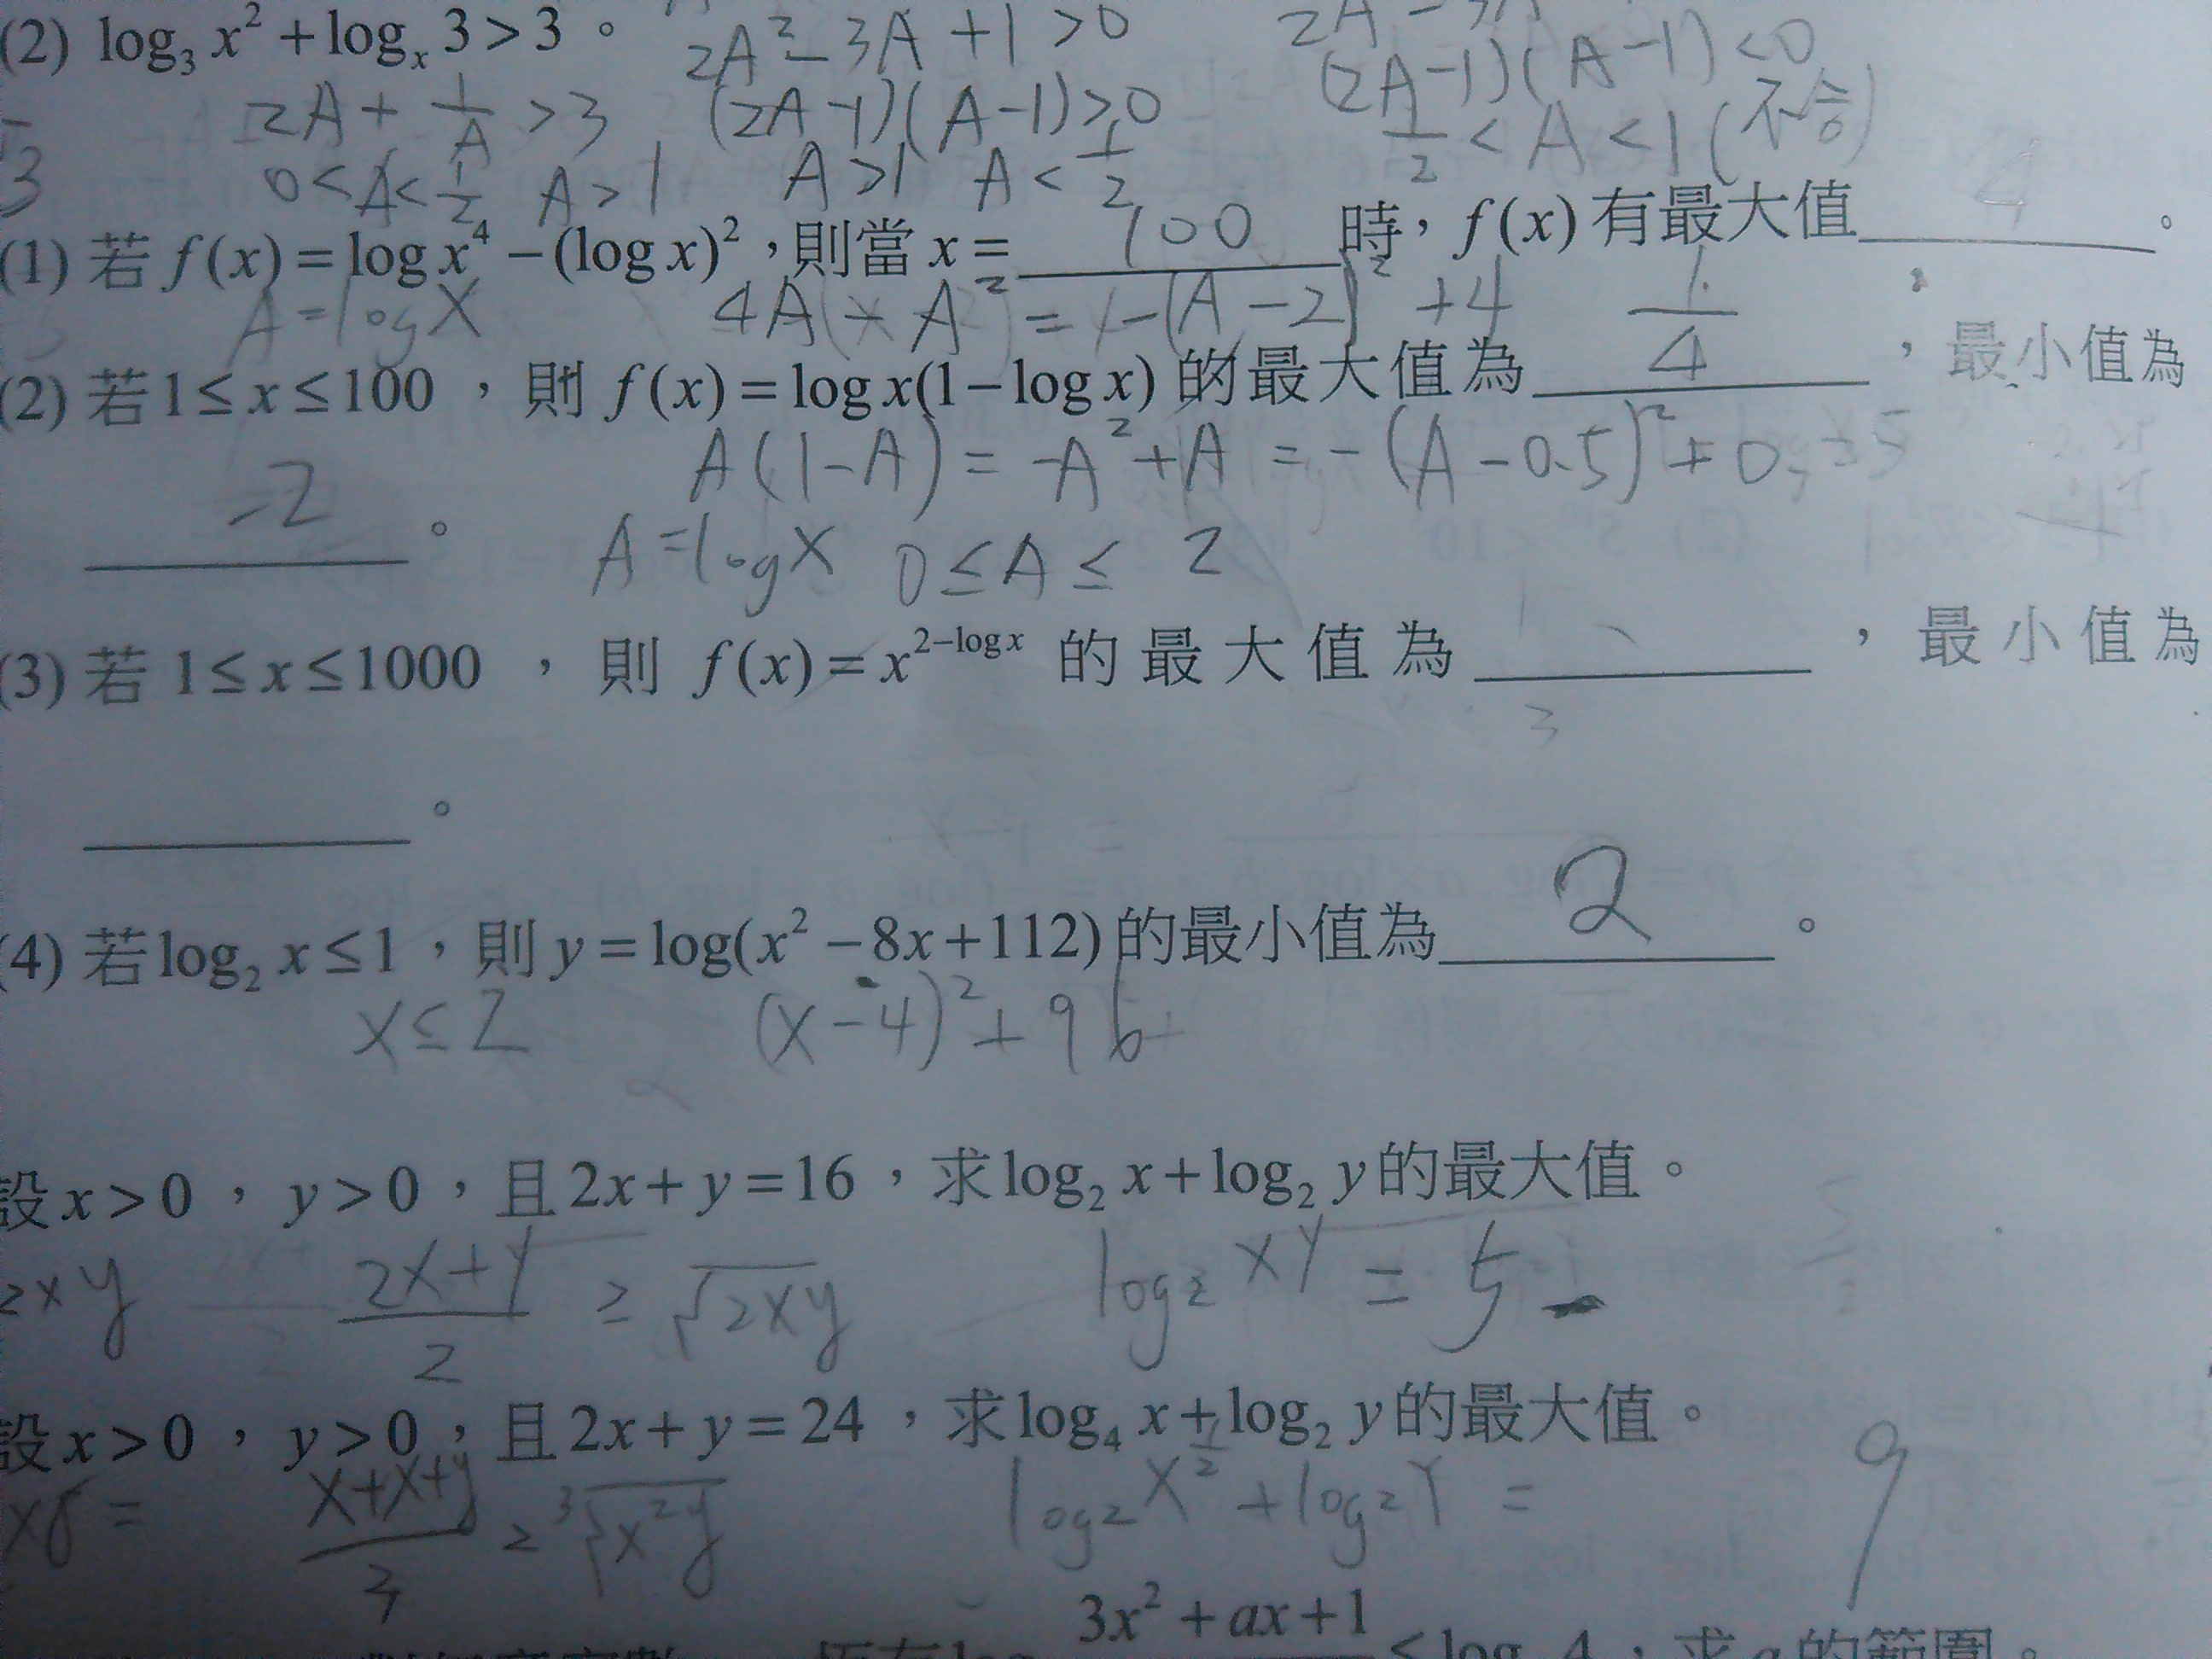 (2) log₃ x² + log_x 3 > 3。 2A² - 3A + 1 > 0
2A + 1/A > 3 (2A-1)(A-1) > 0 (2A-1)(A-1) < 0
3 0 < A < 1/2 A > 1 A > 1 A < 1/2 1/2 < A < 1 (不合)
(1) 若 f(x) = log x⁴ - (log x)²,則當 x = 100 時, f(x) 有最大值 4 。
A = log X 4A - A² = -(A-2)² + 4
(2) 若 1 ≤ x ≤ 100 , 則 f(x) = log x(1 - log x) 的最大值為 1/4 , 最小值為
A(1-A) = -A² + A = -(A-0.5)² +
-2 。
A = log X 0 ≤ A ≤ 2
(3) 若 1 ≤ x ≤ 1000 , 則 f(x) = x^(2-log x) 的最大值為 , 最小值為
。
(4) 若 log₂ x ≤ 1,則 y = log(x² - 8x + 112) 的最小值為 2 。
X ≤ 2 (X-4)² + 96
設 x > 0 , y > 0,且 2x + y = 16,求 log₂ x + log₂ y 的最大值。
2xy (2X+Y)/2 ≥ √(2xy) log₂ XY = 5
設 x > 0 , y > 0,且 2x + y = 24,求 log₄ x + log₂ y 的最大值。
(X+X+y)/3 ≥ ³√(x²y) log₂ X^(1/2) + log₂ Y = 9
(3x² + ax + 1) ≤ log 4,求 a 的範圍。